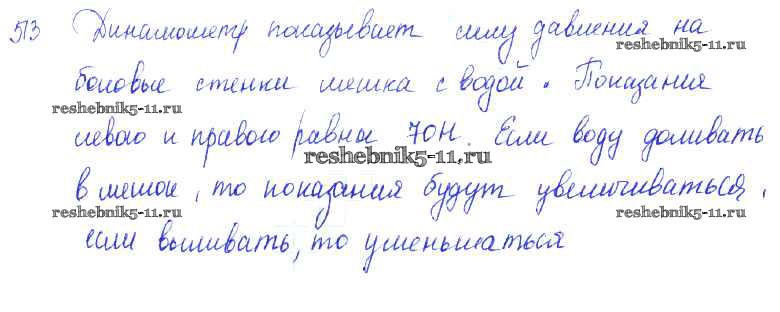 513 Динамометр показывает силу давления на
reshebnik5-11.ru
боковые стенки мешка с водой. Показания
reshebnik5-11.ru
левого и правого равны 70Н. Если воду доливать
reshebnik5-11.ru
reshebnik5-11.ru
в мешок, то показания будут увеличиваться,
reshebnik5-11.ru
reshebnik5-11.ru
если выливать, то уменьшаться